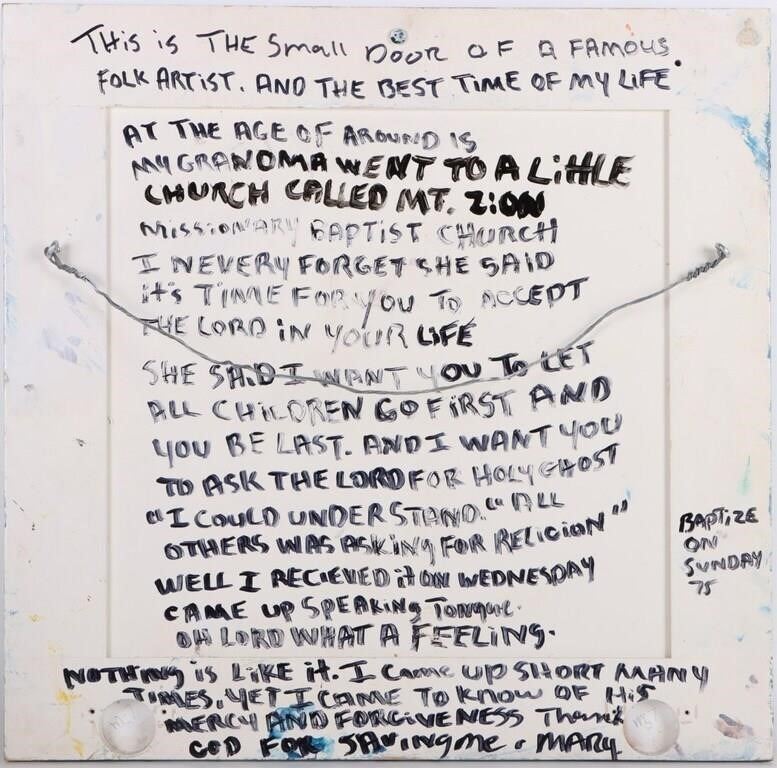 THIS IS THE SMALL DOOR OF A FAMOUS
FOLK ARTIST. AND THE BEST TIME OF MY LIFE.
AT THE AGE OF AROUND 15
MY GRANDMA WENT TO A LITTLE
CHURCH CALLED MT. ZION
MISSIONARY BAPTIST CHURCH
I NEVERY FORGET SHE SAID
IT'S TIME FOR YOU TO ACCEPT
THE LORD IN YOUR LIFE
SHE SAID I WANT YOU TO LET
ALL CHILDREN GO FIRST AND
YOU BE LAST. AND I WANT YOU
TO ASK THE LORD FOR HOLY GHOST
"I COULD UNDERSTAND." ALL
OTHERS WAS ASKING FOR RELIGION"
WELL I RECIEVED it ON WEDNESDAY
CAME UP SPEAKING TONGUE.
OH LORD WHAT A FEELING.
BAPTIZE
ON
SUNDAY
75
NOTHING IS LIKE it. I CAME UP SHORT MANY
TIMES, YET I COME TO KNOW OF HIS
MERCY AND FORGIVENESS THANK
GOD FOR SAVING ME. MARY